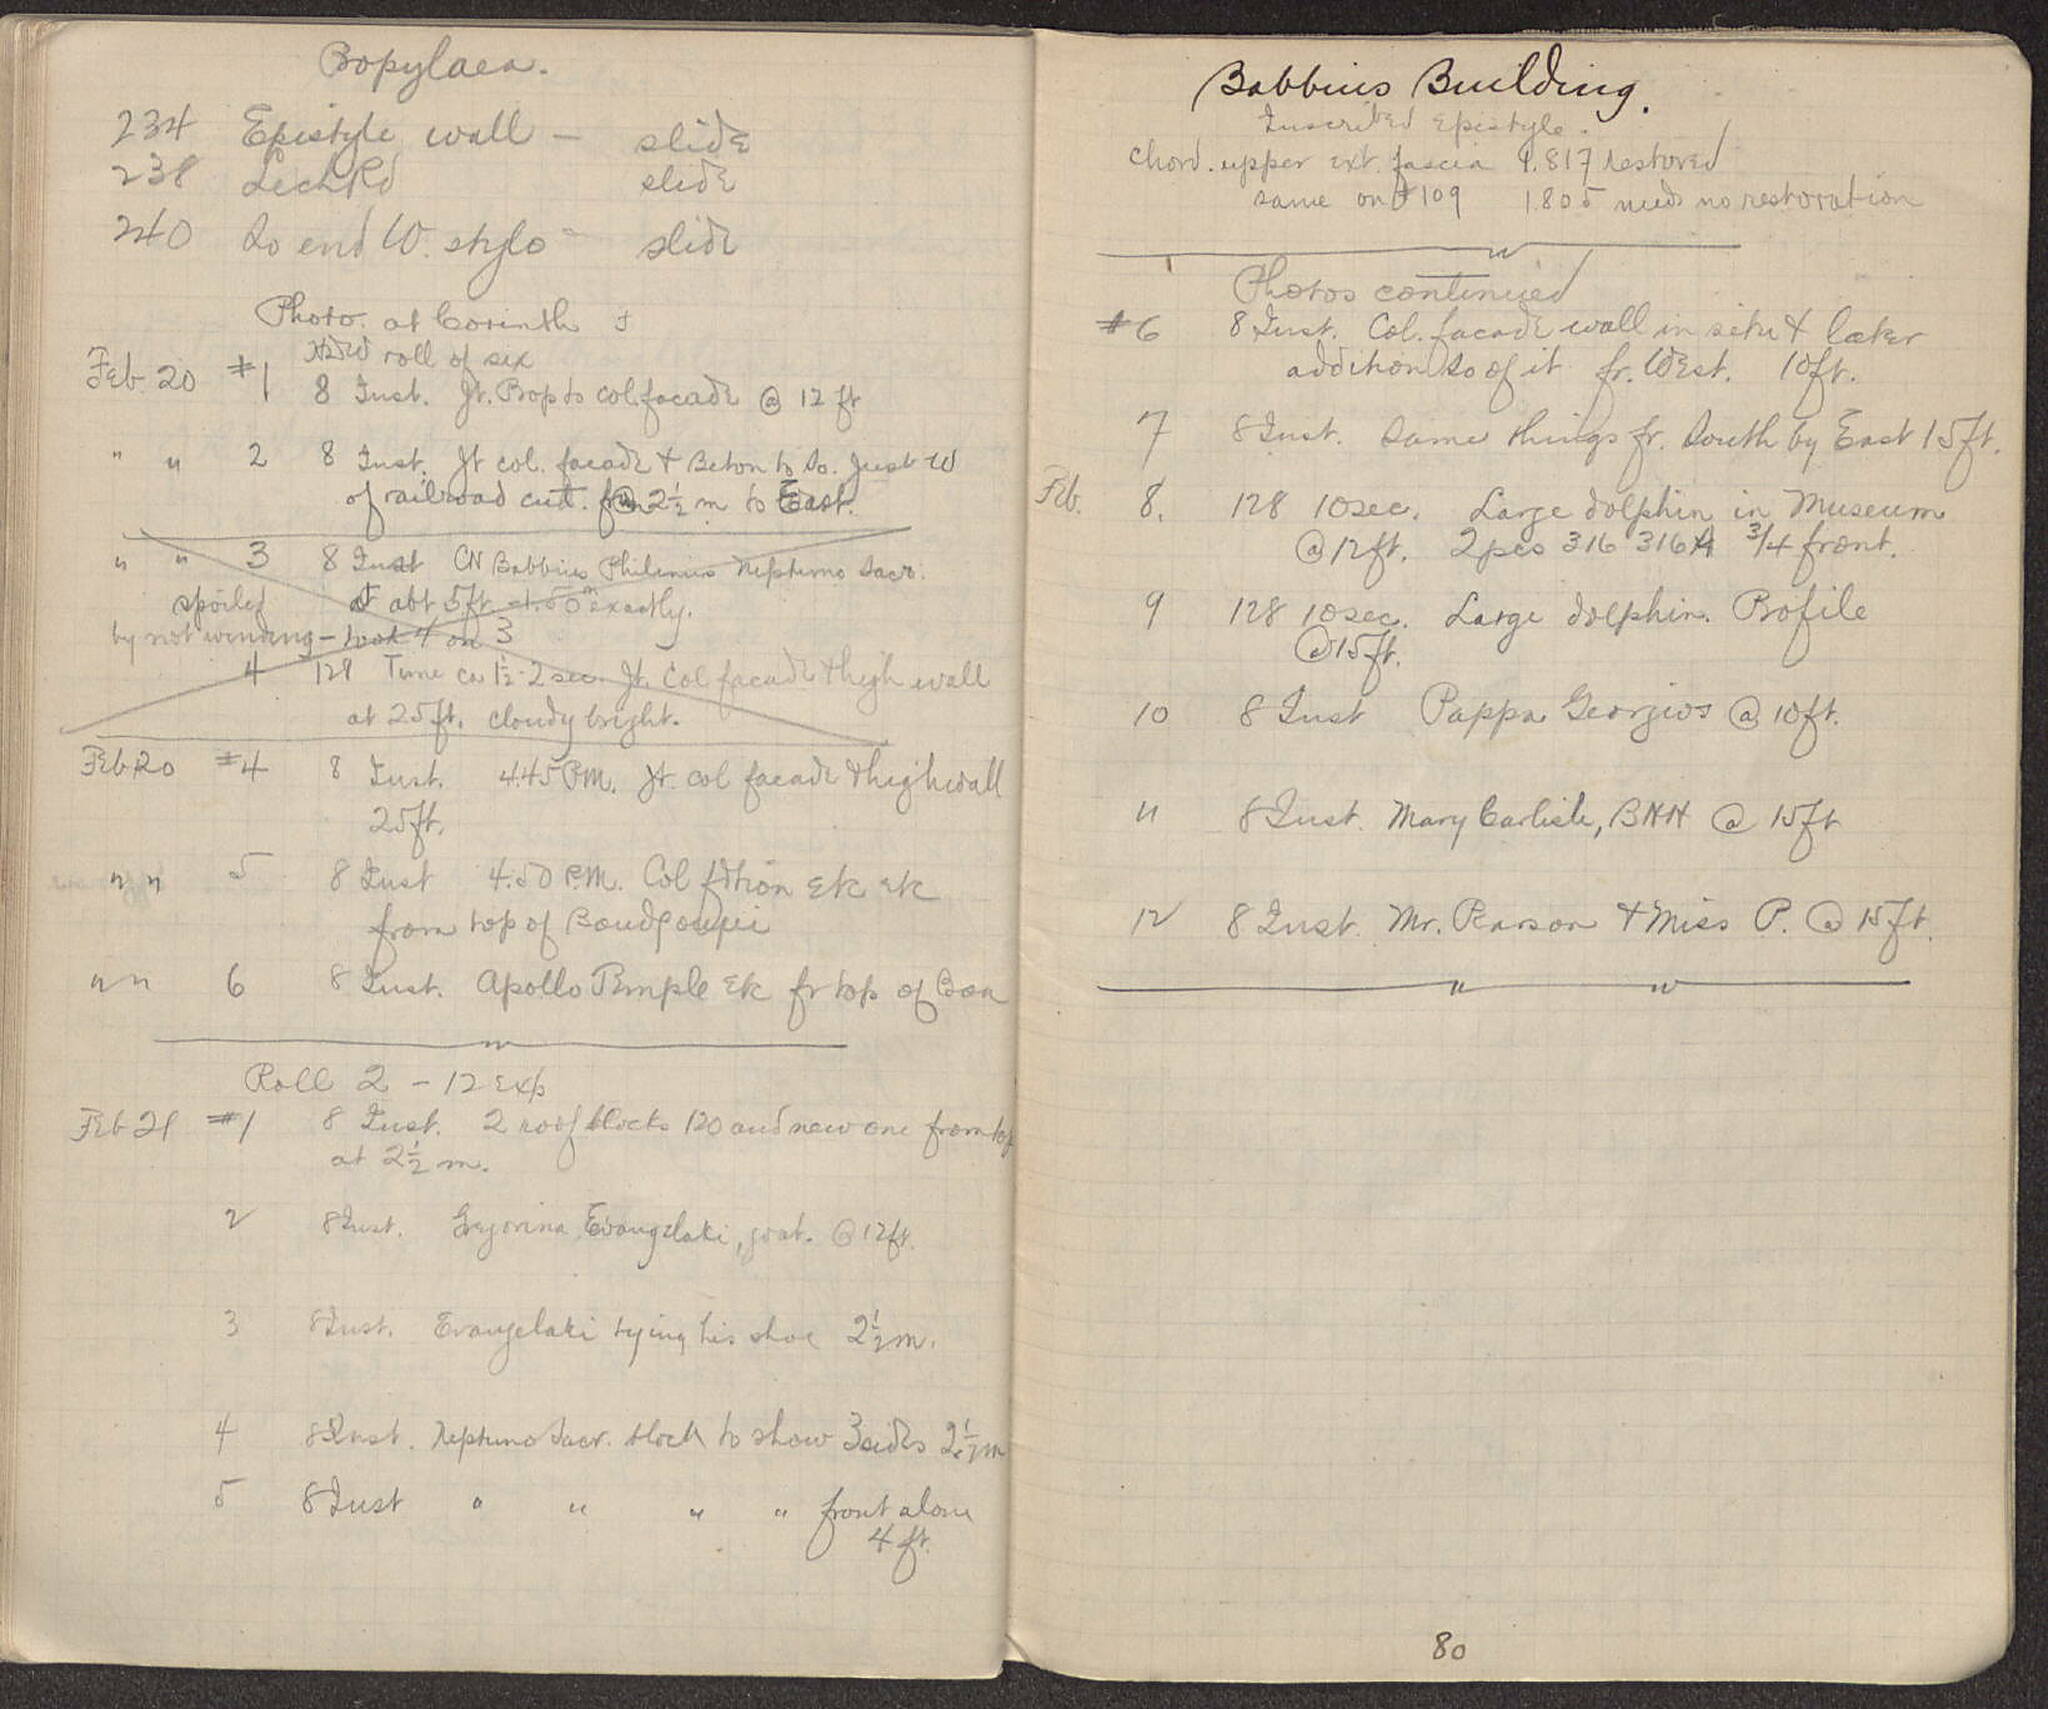 Propylaea.
234 Epistyle wall – slide
238 Lech Rd slide
240 So end W. stylo – slide
Photo. at Corinth
New roll of six
Feb 20 #1 8 Inst. Jt. Prop to col. facade @ 12 ft
" " 2 8 Inst. Jt col. facade & Beton to So. Just W
of railroad cut. @ 2½ m to East.
" " 3 8 Inst CN Babbius Philinus Neptuno Sacr.
spoiled at abt 5 ft 1.50m exactly.
by not winding – took 4 on 3
4 128 Time ca 1½-2 sec. Jt. Col facade & high wall
at 25 ft. cloudy bright.
Feb 20 #4 8 Inst. 4.45 P.M. Jt. col facade & high wall
25 ft.
" " 5 8 Inst 4.50 P.M. Col etk etk
from top of
" " 6 8 Inst. Apollo Temple etk fr top of Bou
Roll 2 – 12 Exp
Feb 21 #1 8 Inst. 2 roof blocks 120 and new one from top
at 2½ m.
2 8 Inst. Evangelaki, goat. @ 12 ft.
3 8 Inst. Evangelaki tying his shoe 2½ m.
4 8 Inst. Neptuno Sacr. block to show 3 sides 2½ m
5 8 Inst " " " " front alone
4 ft.
Babbius Building.
Inscribed Epistyle.
Chord. upper ext. fascia 1.817 restored
same on #109 1.805 needs no restoration
Photos continued
#6 8 Inst. Col. facade wall in situ & later
addition So of it fr. West. 10 ft.
7 8 Inst. Same things fr. South by East 15 ft.
Feb. 8. 128 10 sec. Large dolphin in Museum
@ 12 ft. 2 pcs 316 316A ¾ front.
9 128 10 sec. Large dolphin. Profile
@ 15 ft.
10 8 Inst Pappa Georgios @ 10 ft.
11 8 Inst. Mary Carlisle, BHH @ 15 ft
12 8 Inst. Mr. Pearson & Miss P. @ 15 ft.
80